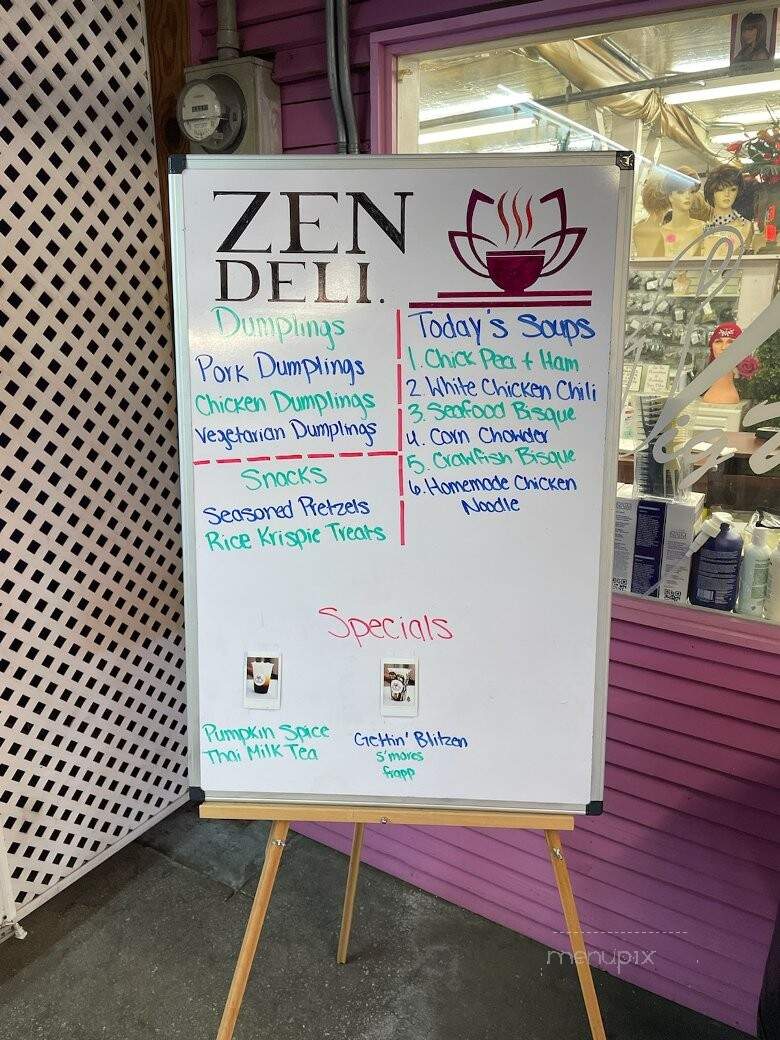 ZEN
DELI.
Dumplings
Pork Dumplings
Chicken Dumplings
Vegetarian Dumplings
Snacks
Seasoned Pretzels
Rice Krispie Treats
Today's Soups
1. Chick Pea + Ham
2. White Chicken Chili
3. Seafood Bisque
4. Corn Chowder
5. Crawfish Bisque
6. Homemade Chicken
Noodle
Specials
Pumpkin Spice
Thai Milk Tea
Gettin' Blitzen
s'mores
frapp
menupix